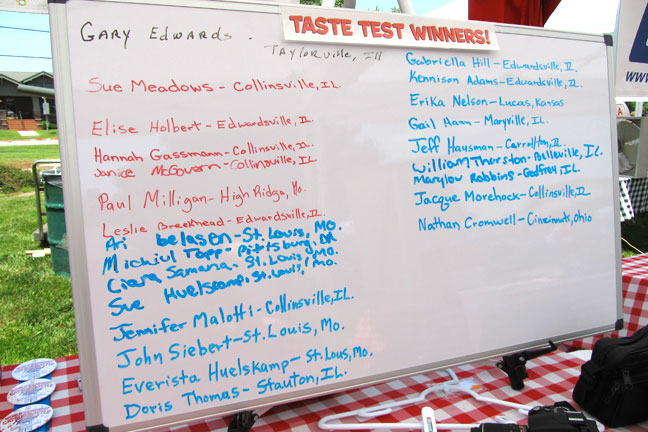 TASTE TEST WINNERS!
Gary Edwards -
Taylorville, Ill
Sue Meadows - Collinsville, IL.
Elise Holbert - Edwardsville, IL.
Hannah Gassmann - Collinsville, IL.
Janice McGovern - Collinsville, IL
Paul Milligan - High Ridge, Mo.
Leslie Breekhead - Edwardsville, IL
Ari belason - St. Louis, MO.
Michiul Topp - Pittsburg, PA
Ciara Samana. St. Louis, MO.
Sue Huelskamp. St. Louis, MO.
Jennifer Malotti - Collinsville, IL.
John Siebert - St. Louis, Mo.
Everista Huelskamp - St. Louis, Mo.
Doris Thomas - Stauton, IL.
Gabriella Hill - Edwardsville, IL.
Kennison Adams - Edwardsville, IL.
Erika Nelson - Lucas, Kansas
Gail Hann - Maryville, IL.
Jeff Haysman - Carrollton, IL.
William Thurston - Belleville, IL.
Marylou Robbins - Godfrey, IL.
Jacque Morehock - Collinsville, IL
Nathan Cromwell - Cincinnati, Ohio
www.